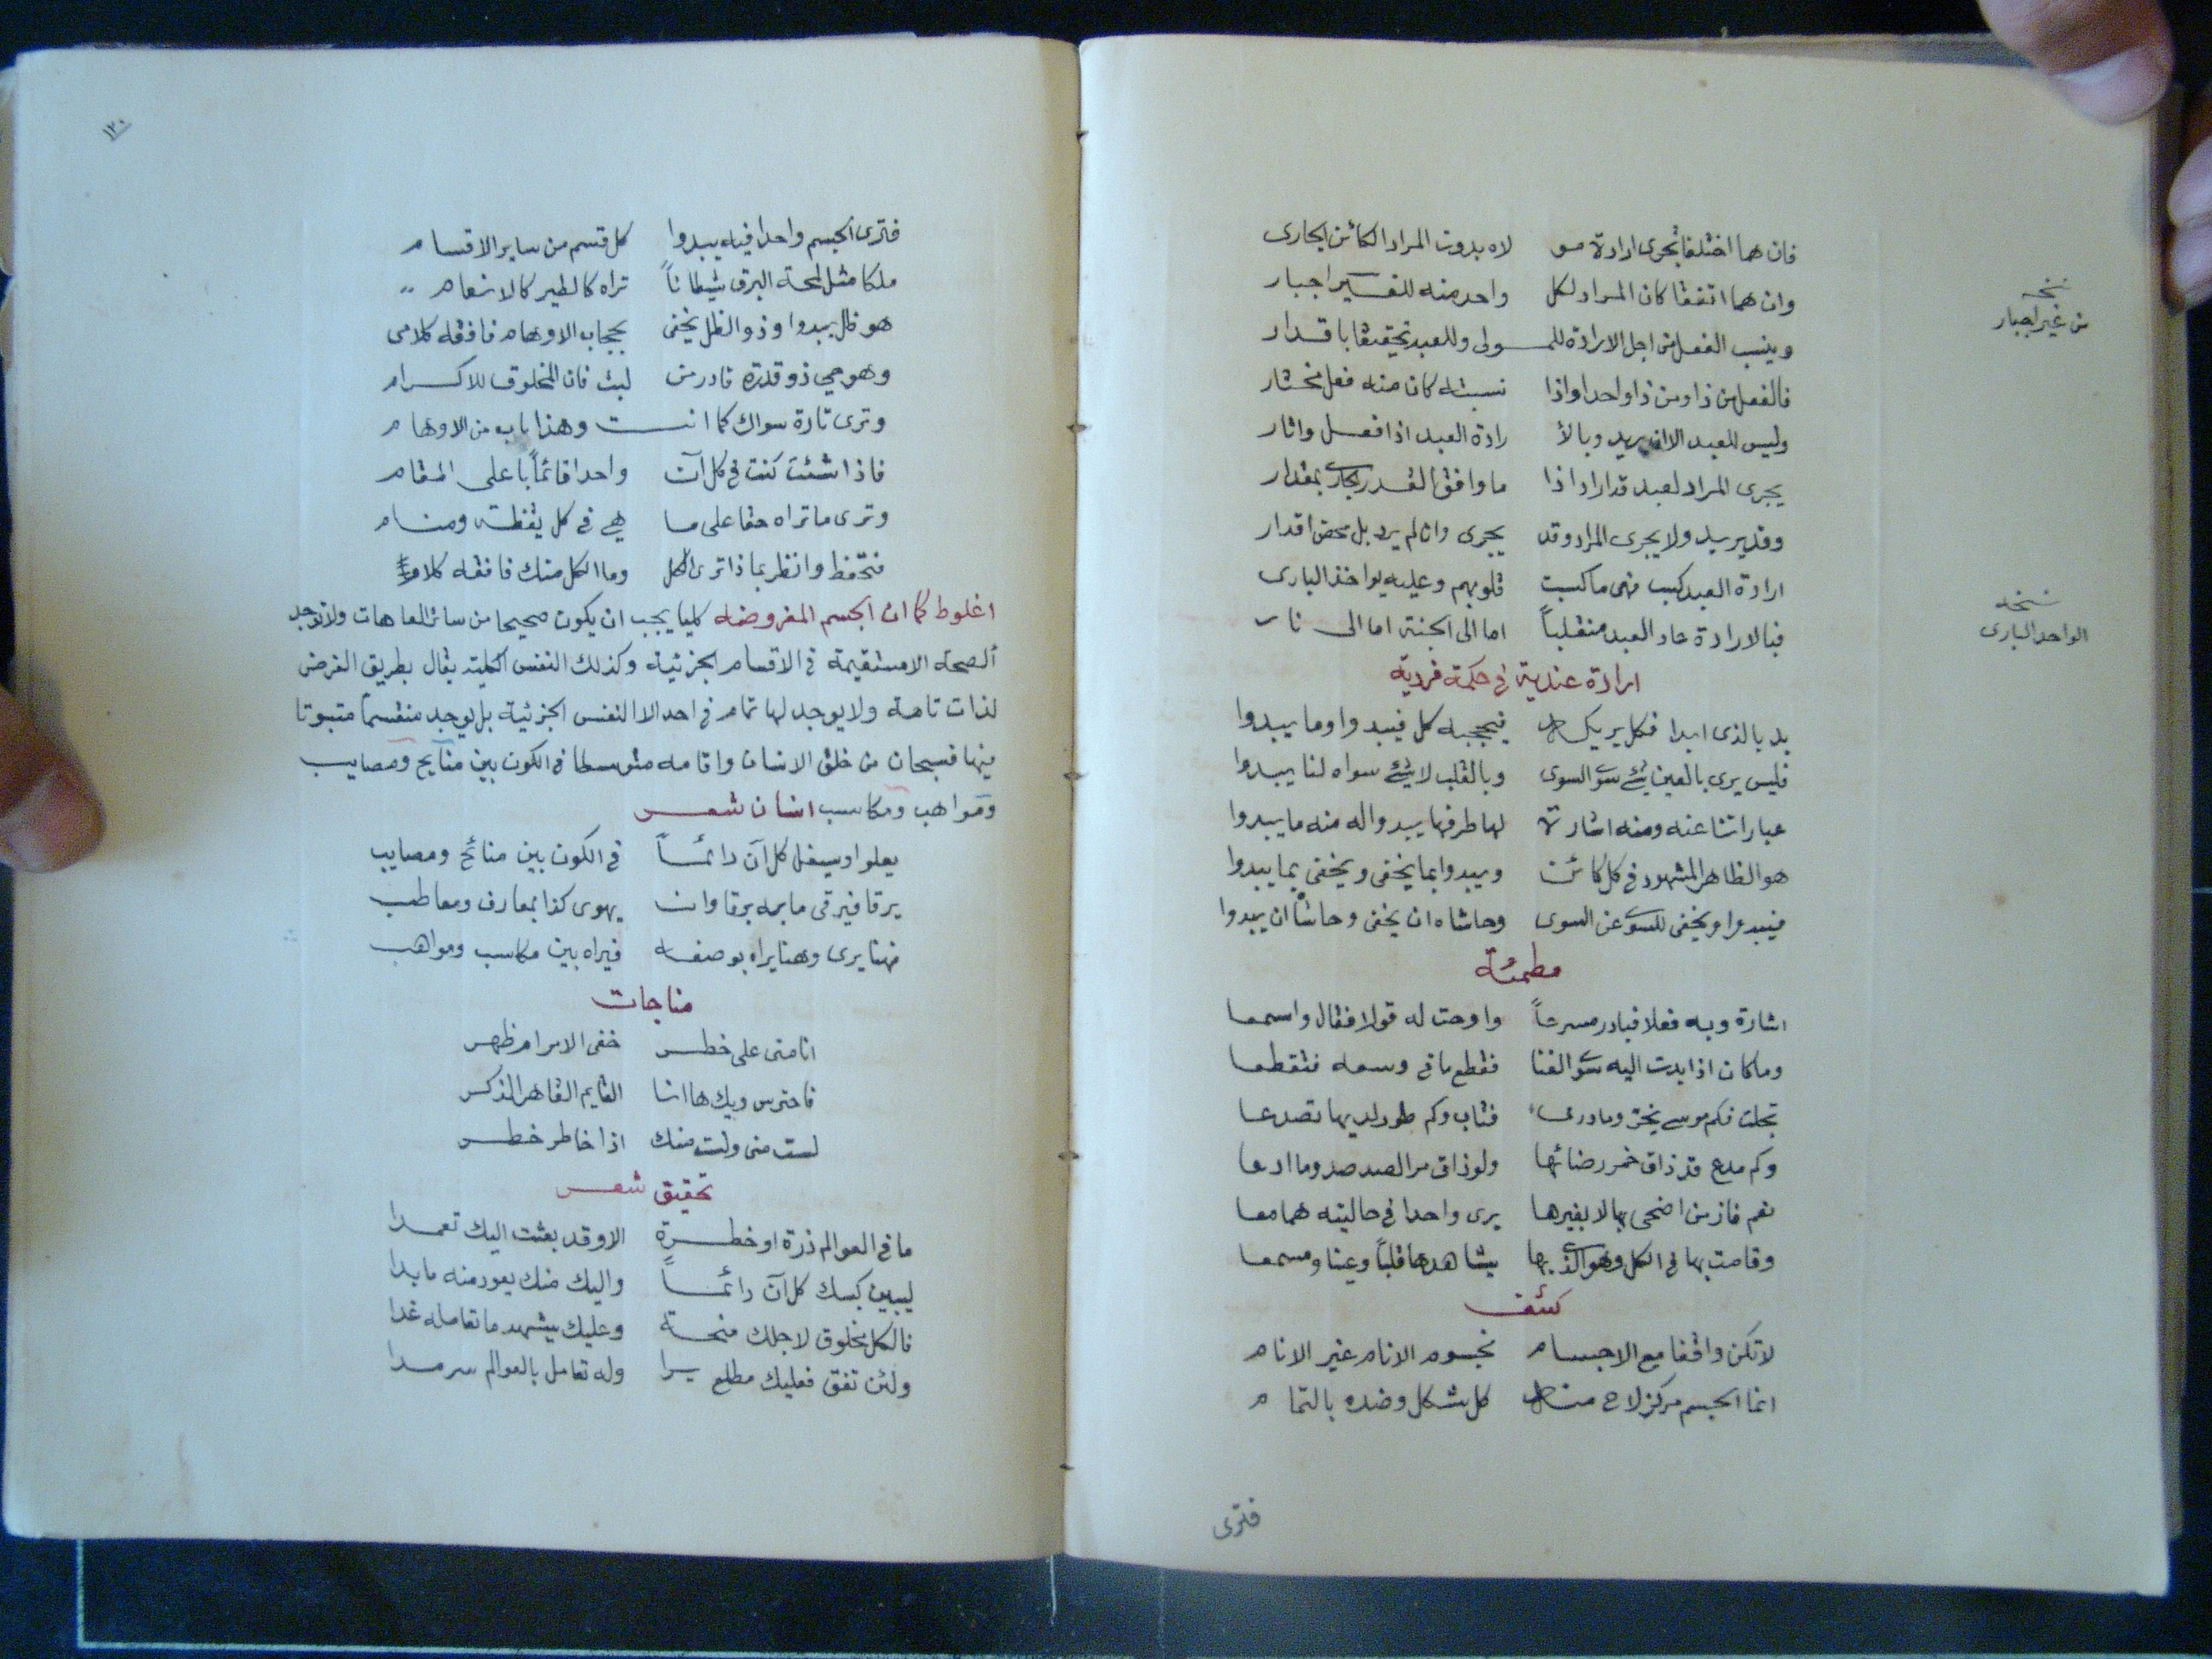 فان هما اختلفا تجرى ارادة مو لاه بدون المراد الكائن الجارى
وان هما اتفقا كان المراد لكل واحد منه للغير اجبار
نسخه
من غير اجبار
وينسب الفعل من اجل الارادة للمولى وللعبد تحقيقا باقدار
فالفعل من ذا ومن ذا واحد اواذا نسبته كان منه فعل مختار
وليس للعبد الا ان يريد وبالا رادة العبد اذا فعل واثار
يجرى المراد لعبد قد اراد اذا ما وافق القدر الجارى بمقدار
وقد يريد ولا يجرى المراد وقد يجرى وان لم يرد بل محض اقدار
ارادة العبد كسب فهى ما كسبت قلوبهم وعليه يواخذ البارى
نسخه
الواحد البارى
فبالارادة عاد العبد منقلباً اما الى الجنة اما الى نار
ارادة عندية فى حكمة فردية
بد بالذى ابدا فكل يريك فيحجبه كل فيبدوا وما يبدوا
فليس يرى بالعين شئ سوى السوى وبالقلب لا شئ سواه لنا يبدوا
عباراتنا عنه ومنه اشارة لها طرفها يبدوا له منه ما يبدوا
هو الظاهر المشهود فى كل كائن ويبدوا بما يخفى ويخفى بما يبدوا
فيبدوا ويخفى للسوى عن السوى وحاشاه ان يخفى وحاشاه ان يبدوا
مطمئنة
اشارة وبه فعلا فبادر مسرعاً واوحت له قولا فقال واسمعا
وما كان اذا بدت اليه سوى الفنا فقطع ما فى وسعه فتقطعا
تجلت فكم موسى يخر وما درى فتاب وكم طور لديها تصدعا
وكم مدع قد ذاق خمر رضائها ولو ذاق مر الصد صد وما ادعا
نعم فاز من اضحى بها لا بغيرها يرى واحدا فى حاليته هما معا
وقامت بها فى الكل وهو الذى بها يشاهدها قلباً وعينا ومسمعا
كشف
لا تكن واقفا مع الاجسام فجسوم الانام غير الانام
انما الجسم مركز لاح منه كل شكل وضده بالتمام
فترى
١٢٠
فترى الجسم واحدا فيه يبدوا كل قسم من ساير الاقسام
ملكا مثل لمحة البرق شيطاناً تراه كالطير كالانعام
هو ظل يبدوا وذو الظل يخفى بحجاب الاوهام فافقه كلامى
وهو حى ذو قدرة قادر من لبث فان المخلوق للاكرام
وترى تارة سواك كما انت وهذا باب من الاوهام
فاذا شئت كنت فى كل آن واحدا قائماً باعلى المقام
وترى ما تراه حقا على ما هى فى كل يقظة ومنام
فتحفظ وانظر بماذا ترى الكل وما الكل منك فافقه كلامى
اغلوط كما ان الجسم المفروضه كليا يجب ان يكون صحيحا من سائر العاهات ولا توجد
الصحة الا مستقيمة فى الاقسام الجزئية وكذلك النفس الكلية يقال بطريق الفرض
لذات تامة ولا يوجد لها تمام فى احد الا النفس الجزئية بل يوجد منقسماً متبوتا
فيها فسبحان من خلق الانسان واقامه متوسطا فى الكون بين منايح ومصايب
ومواهب ومكاسب انسان شعر
يعلوا ويسفل كل آن دائماً فى الكون بين منائح ومصايب
يرقا فيرقى ما به يرقا وان يهوى كذا بمعارف ومعاطب
فهنا يرى وهنا يراه بوصفه فيراه بين مكاسب ومواهب
مناجات
انا منى على خطر خفى الامر ام ظهر
فاحترس ويك ها انا القايم القاهر الذكر
لست منى ولست منك اذا خاطر خطر
تحقيق شعر
ما فى العوالم ذرة او خطرة الا وقد بعثت اليك تعمدا
ليبين كسبك كل آن دائماً واليك منك يعود منه ما بدا
فالكل مخلوق لاجلك منحة وعليك يشهد ما تعامله غدا
ولئن تفق فعليك مطلع يرا وله تعامل بالعوالم سرمدا